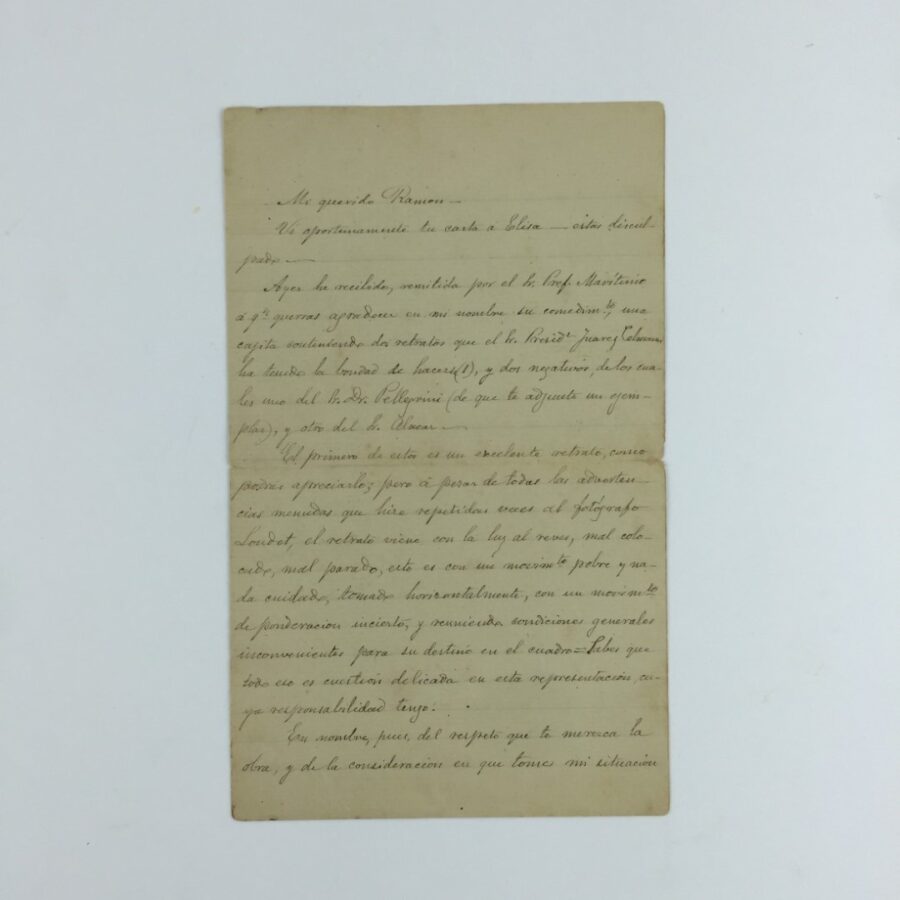 Mi querido Ramon —
Vi oportunamente tu carta á Elisa — estás discul-
pado —
Ayer he recibido, remitida por el Sr. Pref. Marítimo
á qn querras agradecer en mi nombre su comedimto, una
cajita conteniendo dos retratos que el Sr. Presidte Juarez Celman
ha tenido la bondad de hacerse (1), y dos negativos, de los cua-
les uno del Sr. Dr. Pellegrini (de que te adjunto un ejem-
plar), y otro del Sr. Alvear —
El primero de estos es un excelente retrato, como
podrás apreciarlo; pero á pesar de todas las adverten-
cias menudas que hice repetidas veces al fotógrafo
Loudet, el retrato viene con la luz al reves, mal colo-
cado, mal parado, esto es con un movimto pobre y na-
da cuidado, tomado horizontalmente, con un movimto
de ponderacion incierto, y reuniendo condiciones generales
inconvenientes para su destino en el cuadro = Sabes que
todo eso es cuestión delicada en esta representación, cu-
ya responsabilidad tengo.
En nombre, pues, del respeto que te merezca la
obra, y de la consideración en que tomes mi situación